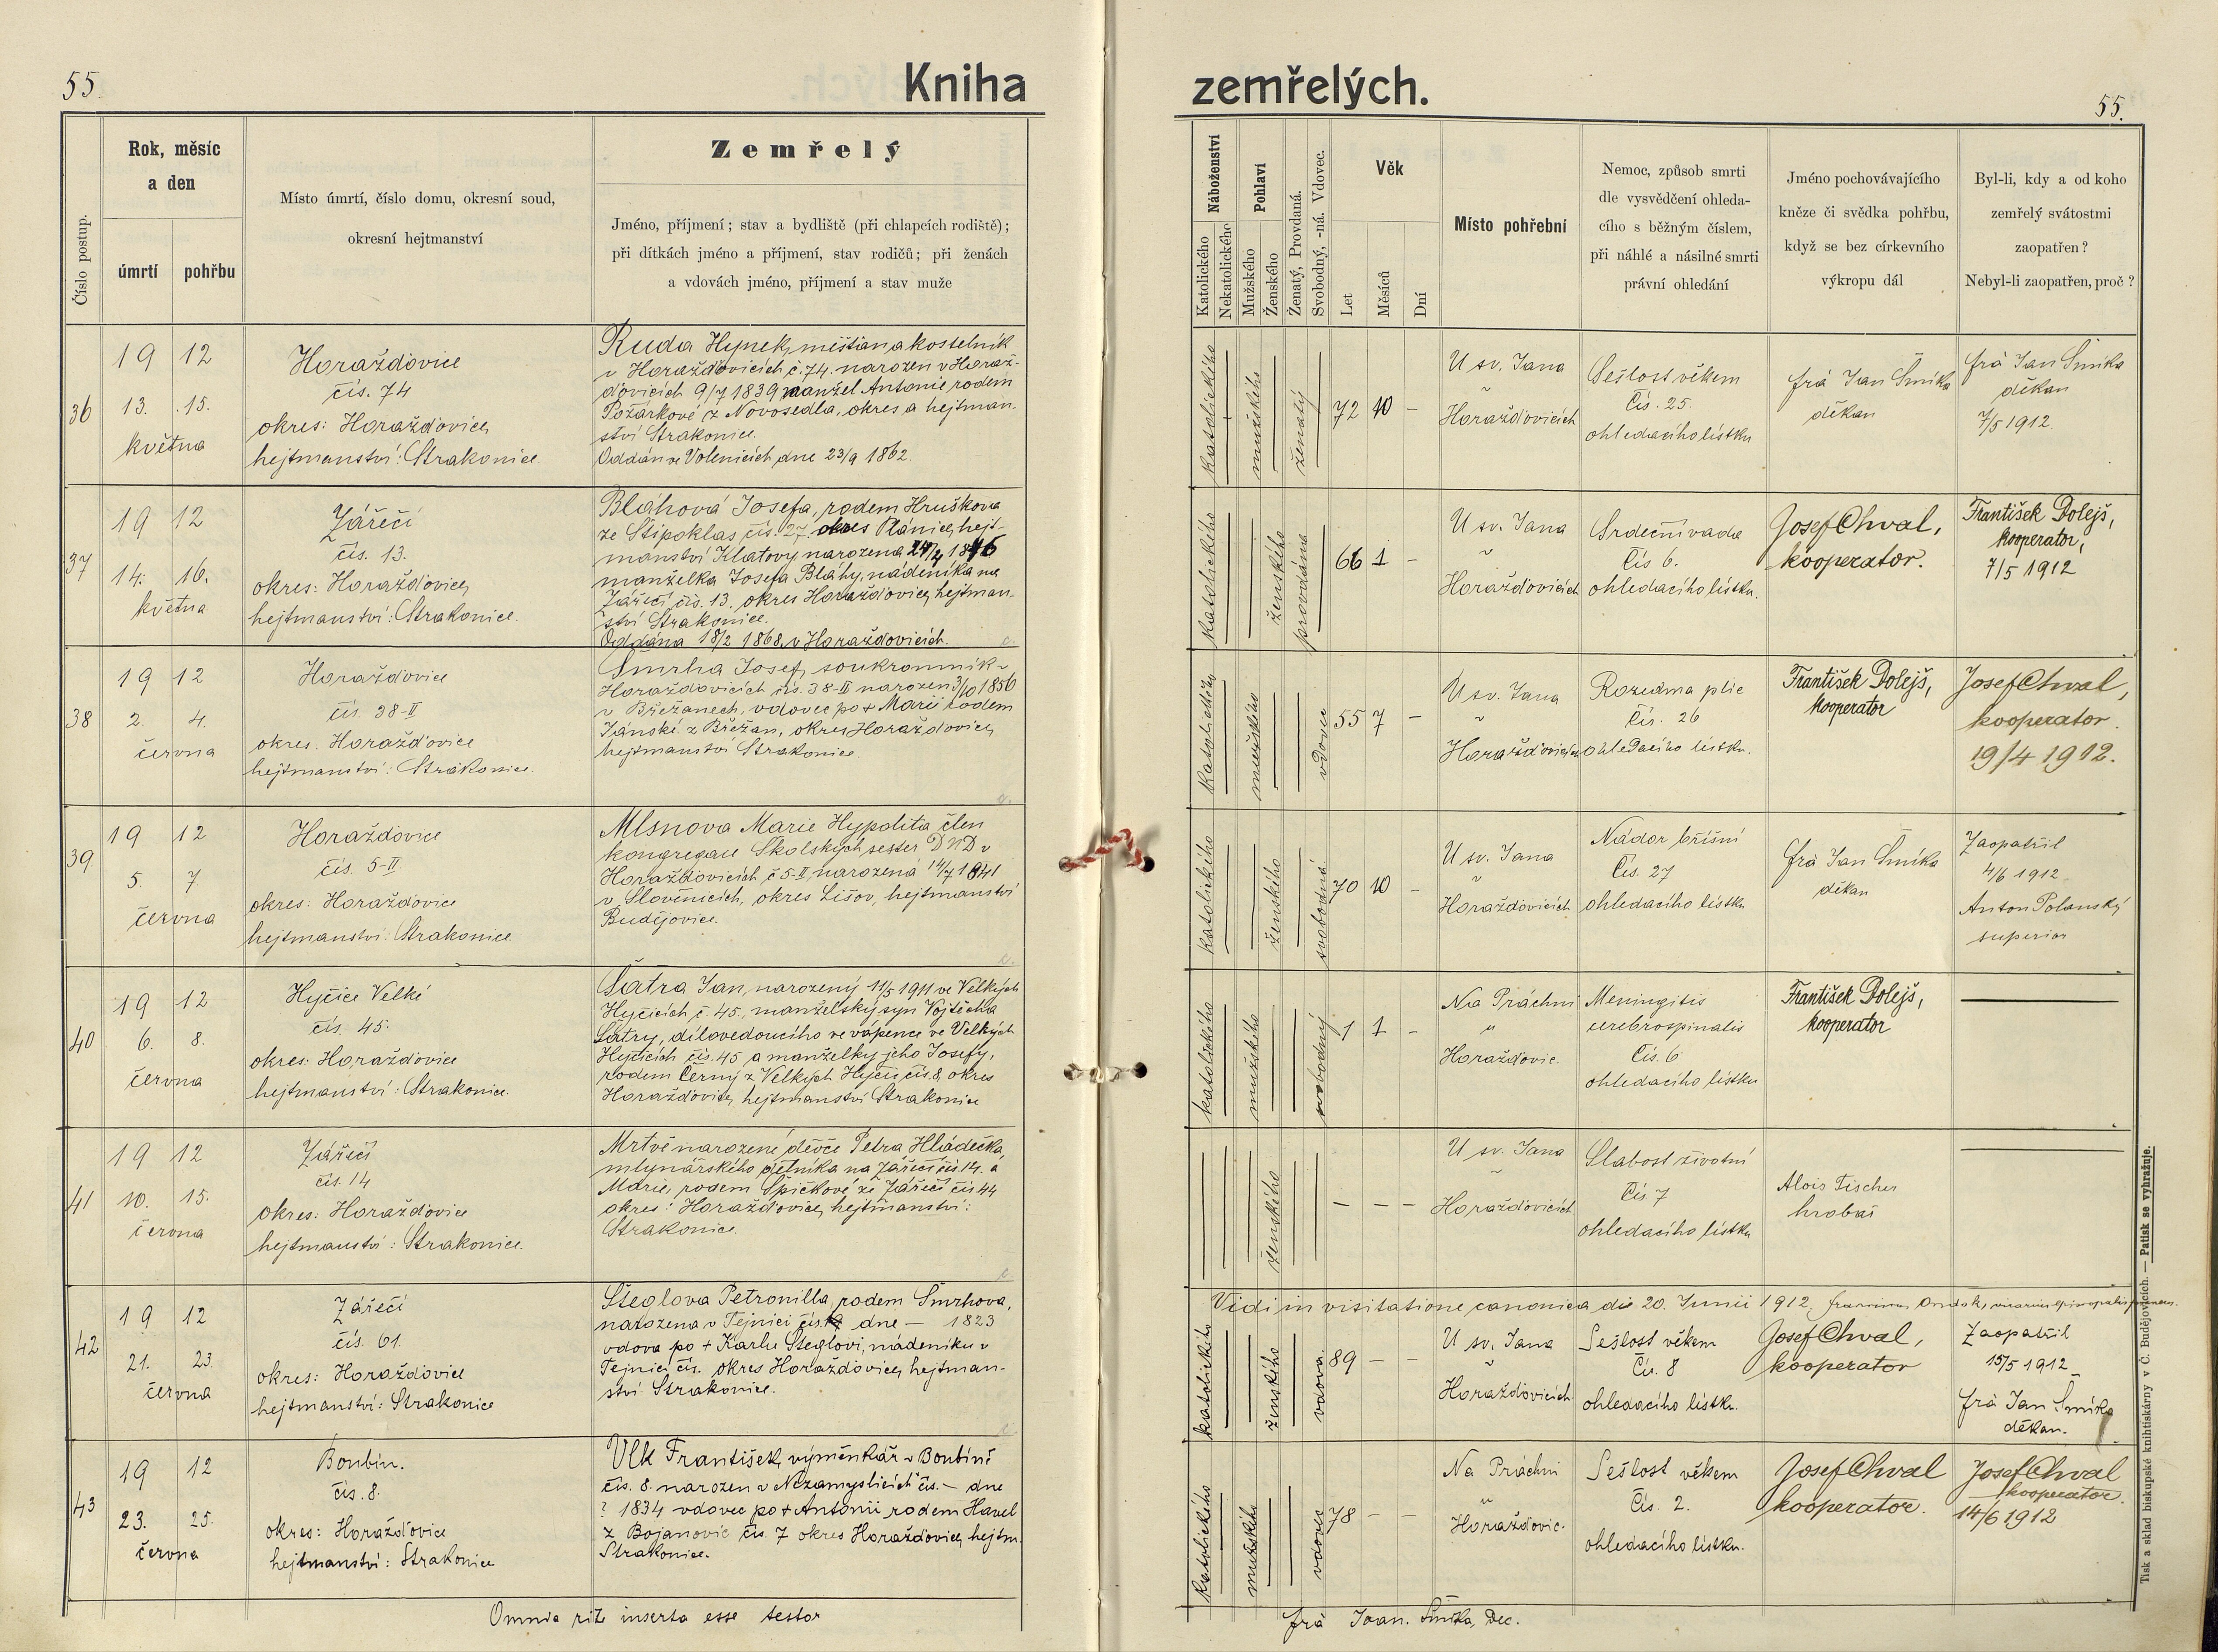 55.
Kniha
zemřelých.
55.
Číslo postup.
Rok, měsíc
a den
úmrtí
pohřbu
Místo úmrtí, číslo domu, okresní soud,
okresní hejtmanství
Zemřelý
Jméno, příjmení; stav a bydliště (při chlapcích rodiště);
při dítkách jméno a příjmení, stav rodičů; při ženách
a vdovách jméno, příjmení a stav muže
Náboženství
Katolického
Nekatolického
Pohlaví
Mužského
Ženského
Ženatý, Provdaná.
Svobodný, -ná. Vdovec.
Věk
Let
Měsíců
Dní
Místo pohřební
Nemoc, způsob smrti
dle vysvědčení ohleda-
cího s běžným číslem,
při náhlé a násilné smrti
právní ohledání
Jméno pochovávajícího
kněze či svědka pohřbu,
když se bez církevního
výkropu dál
Byl-li, kdy a od koho
zemřelý svátostmi
zaopatřen?
Nebyl-li zaopatřen, proč?
36
19 12
13. 15.
května
Horažďovice
čís. 74
okres: Horažďovice,
hejtmanství: Strakonice
Ruda Hynek, měšťan a kostelník
v Horažďovicích č. 74. narozen v Horaž-
ďovicích 9/7 1839 manžel Antonie rodem
Požárkové z Novosedla, okres a hejtman-
ství Strakonice.
Oddán ve Volenicích dne 23/9 1862.
katolického
mužského
ženatý
72 10 –
U sv. Jana
v
Horažďovicích
Sešlost věkem
Čís. 25.
ohledacího lístku
frá Jan Šmíka
děkan
frá Jan Šmíka
děkan
7/5 1912.
37
19 12
14. 16.
května
Zářečí
čís. 13.
okres: Horažďovice,
hejtmanství: Strakonice.
Bláhová Josefa, rodem Hruškova
ze Štipoklas čís. 27. okres Plánice, hejt-
manství Klatovy narozena 24/4 1846
manželka Josefa Bláhy, nádeníka na
Zářečí čís. 13. okres Horažďovice, hejtman-
ství Strakonice.
Oddána 18/2 1868, v Horažďovicích.
katolického
ženského
provdána
66 1 –
U sv. Jana
v
Horažďovicích
Srdeční vada
Čís 6.
ohledacího lístku.
Josef Chval,
kooperator.
František Dolejš,
kooperator,
7/5 1912
38
19 12
2. 4.
června
Horažďovice
čís. 38-II
okres: Horažďovice
hejtmanství: Strakonice.
Šmrha Josef, soukromník v
Horažďovicích čís. 38-II narozen 3/10 1856
v Břežanech, vdovec po + Marii rodem
Jánské z Břežan, okres Horažďovice,
hejtmanství Strakonice
katolického
mužského
vdovec
55 7 –
U sv. Jana
v
Horažďovicích
Rozedma plic
Čís. 26
ohledacího lístku.
František Dolejš,
kooperator
Josef Chval,
kooperator.
19/4 1912.
39
19 12
5. 7.
června
Horažďovice
čís. 5-II.
okres: Horažďovice
hejtmanství: Strakonice.
Mlsnova Marie Hypolita člen
kongregace Školských sester D N D v
Horažďovicích č 5-II, narozená 14/7 1841
v Slověnicích, okres Lišov, hejtmanství
Budějovice.
katolického
ženského
svobodná
70 10 –
U sv. Jana
v
Horažďovicích.
Nádor břišní
Čís. 27
ohledacího lístku
frá Jan Šmíka
děkan
Zaopatřil
4/6 1912
Anton Polanský
superior
40
19 12
6. 8.
června
Hyčice Velké
čís. 45.
okres: Horažďovice
hejtmanství: Strakonice.
Šatra Jan, narozený 11/5 1911 ve Velkých
Hyčicích č. 45. manželský syn Vojtěcha
Šatry, dílovedoucího ve vápence ve Velkých
Hyčicích čís. 45 a manželky jeho Josefy,
rodem Černý z Velkých Hyčic čís. 8, okres
Horažďovice, hejtmanství Strakonice
katolického
mužského
svobodný
1 1 –
Na Práchni
u
Horažďovic
Meningitis
cerebrospinalis
Čís. 6
ohledacího lístku
František Dolejš,
kooperator
41
19 12
10. 15.
června
Zářečí
čís. 14
okres: Horažďovice
hejtmanství: Strakonice.
Mrtvě narozené děvče Petra Hládečka,
mlynářského dělníka na Zářečí čís 14. a
Marie, rodem Špičkové ze Zářečí čís 44
okres: Horažďovice, hejtmanství:
Strakonice.
ženského
– – –
U sv. Jana
v
Horažďovicích
Slabost životní
Čís 7
ohledacího lístku
Alois Fischer
hrobař
Vidi in visitatione canonica die 20. Junii 1912.
42
19 12
21. 23.
června
Zářečí
čís. 61.
okres: Horažďovice
hejtmanství: Strakonice
Šteglova Petronilla, rodem Šmrhova,
narozena v Tejnici čís. 19 dne – 1823
vdova po + Karlu Šteglovi, nádeníku v
Tejnici čís. okres Horažďovice, hejtman-
ství Strakonice.
katolického
ženského
vdova.
89 – –
U sv. Jana
v
Horažďovicích.
Sešlost věkem
Čís. 8
ohledacího lístku.
Josef Chval,
kooperator
Zaopatřil
15/5 1912
frá Jan Šmíka
děkan.
43
19 12
23. 25.
června
Boubín.
čís. 8.
okres: Horažďovice
hejtmanství: Strakonice
Vlk František, výměnkář v Boubíně
čís. 8. narozen v Nezamyslicích čís. – dne
? 1834 vdovec po + Antonii rodem Havel
z Bojanovic čís. 7 okres Horažďovice, hejtm.
Strakonice.
katolického
mužského
vdovec
78 – –
Na Práchni
u
Horažďovic.
Sešlost věkem
Čís. 2.
ohledacího lístku.
Josef Chval
kooperator.
Josef Chval
kooperator.
14/6 1912
Omnia rite inserta esse testor
frá Joan. Šmíka, Dec.
Tisk a sklad biskupské knihtiskárny v Č. Budějovicích. — Patisk se vyhražuje.